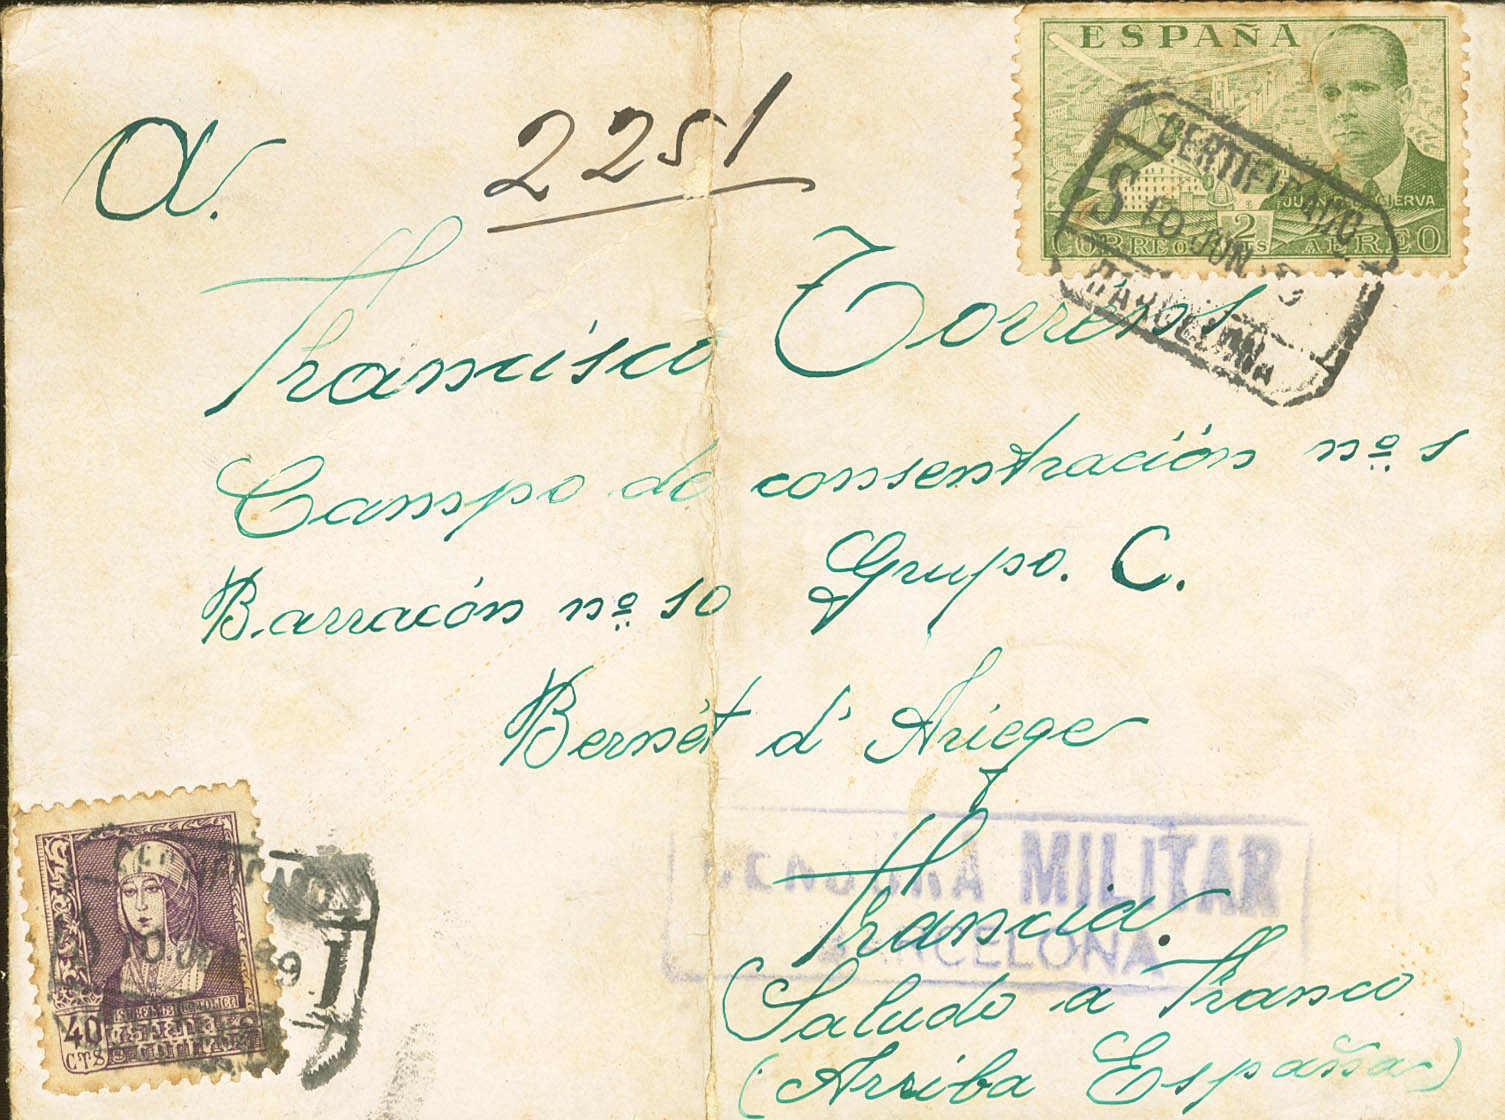 ESPAÑA
JUAN DE LA CIERVA
2 PTS
CORREO AEREO
CERTIFICADO
S 10 JUN. 39
BARCELONA
a. 2251
Francisco Torrens
Campo de consentración nº 1
Barracón nº 10 Grupo. C.
Bernét d' Ariege
Francia.
CENSURA MILITAR
BARCELONA
Saludo a Franco
(Arriba España)
ISABEL LA CATOLICA
40
CTS
ESPAÑA
JUN. 39